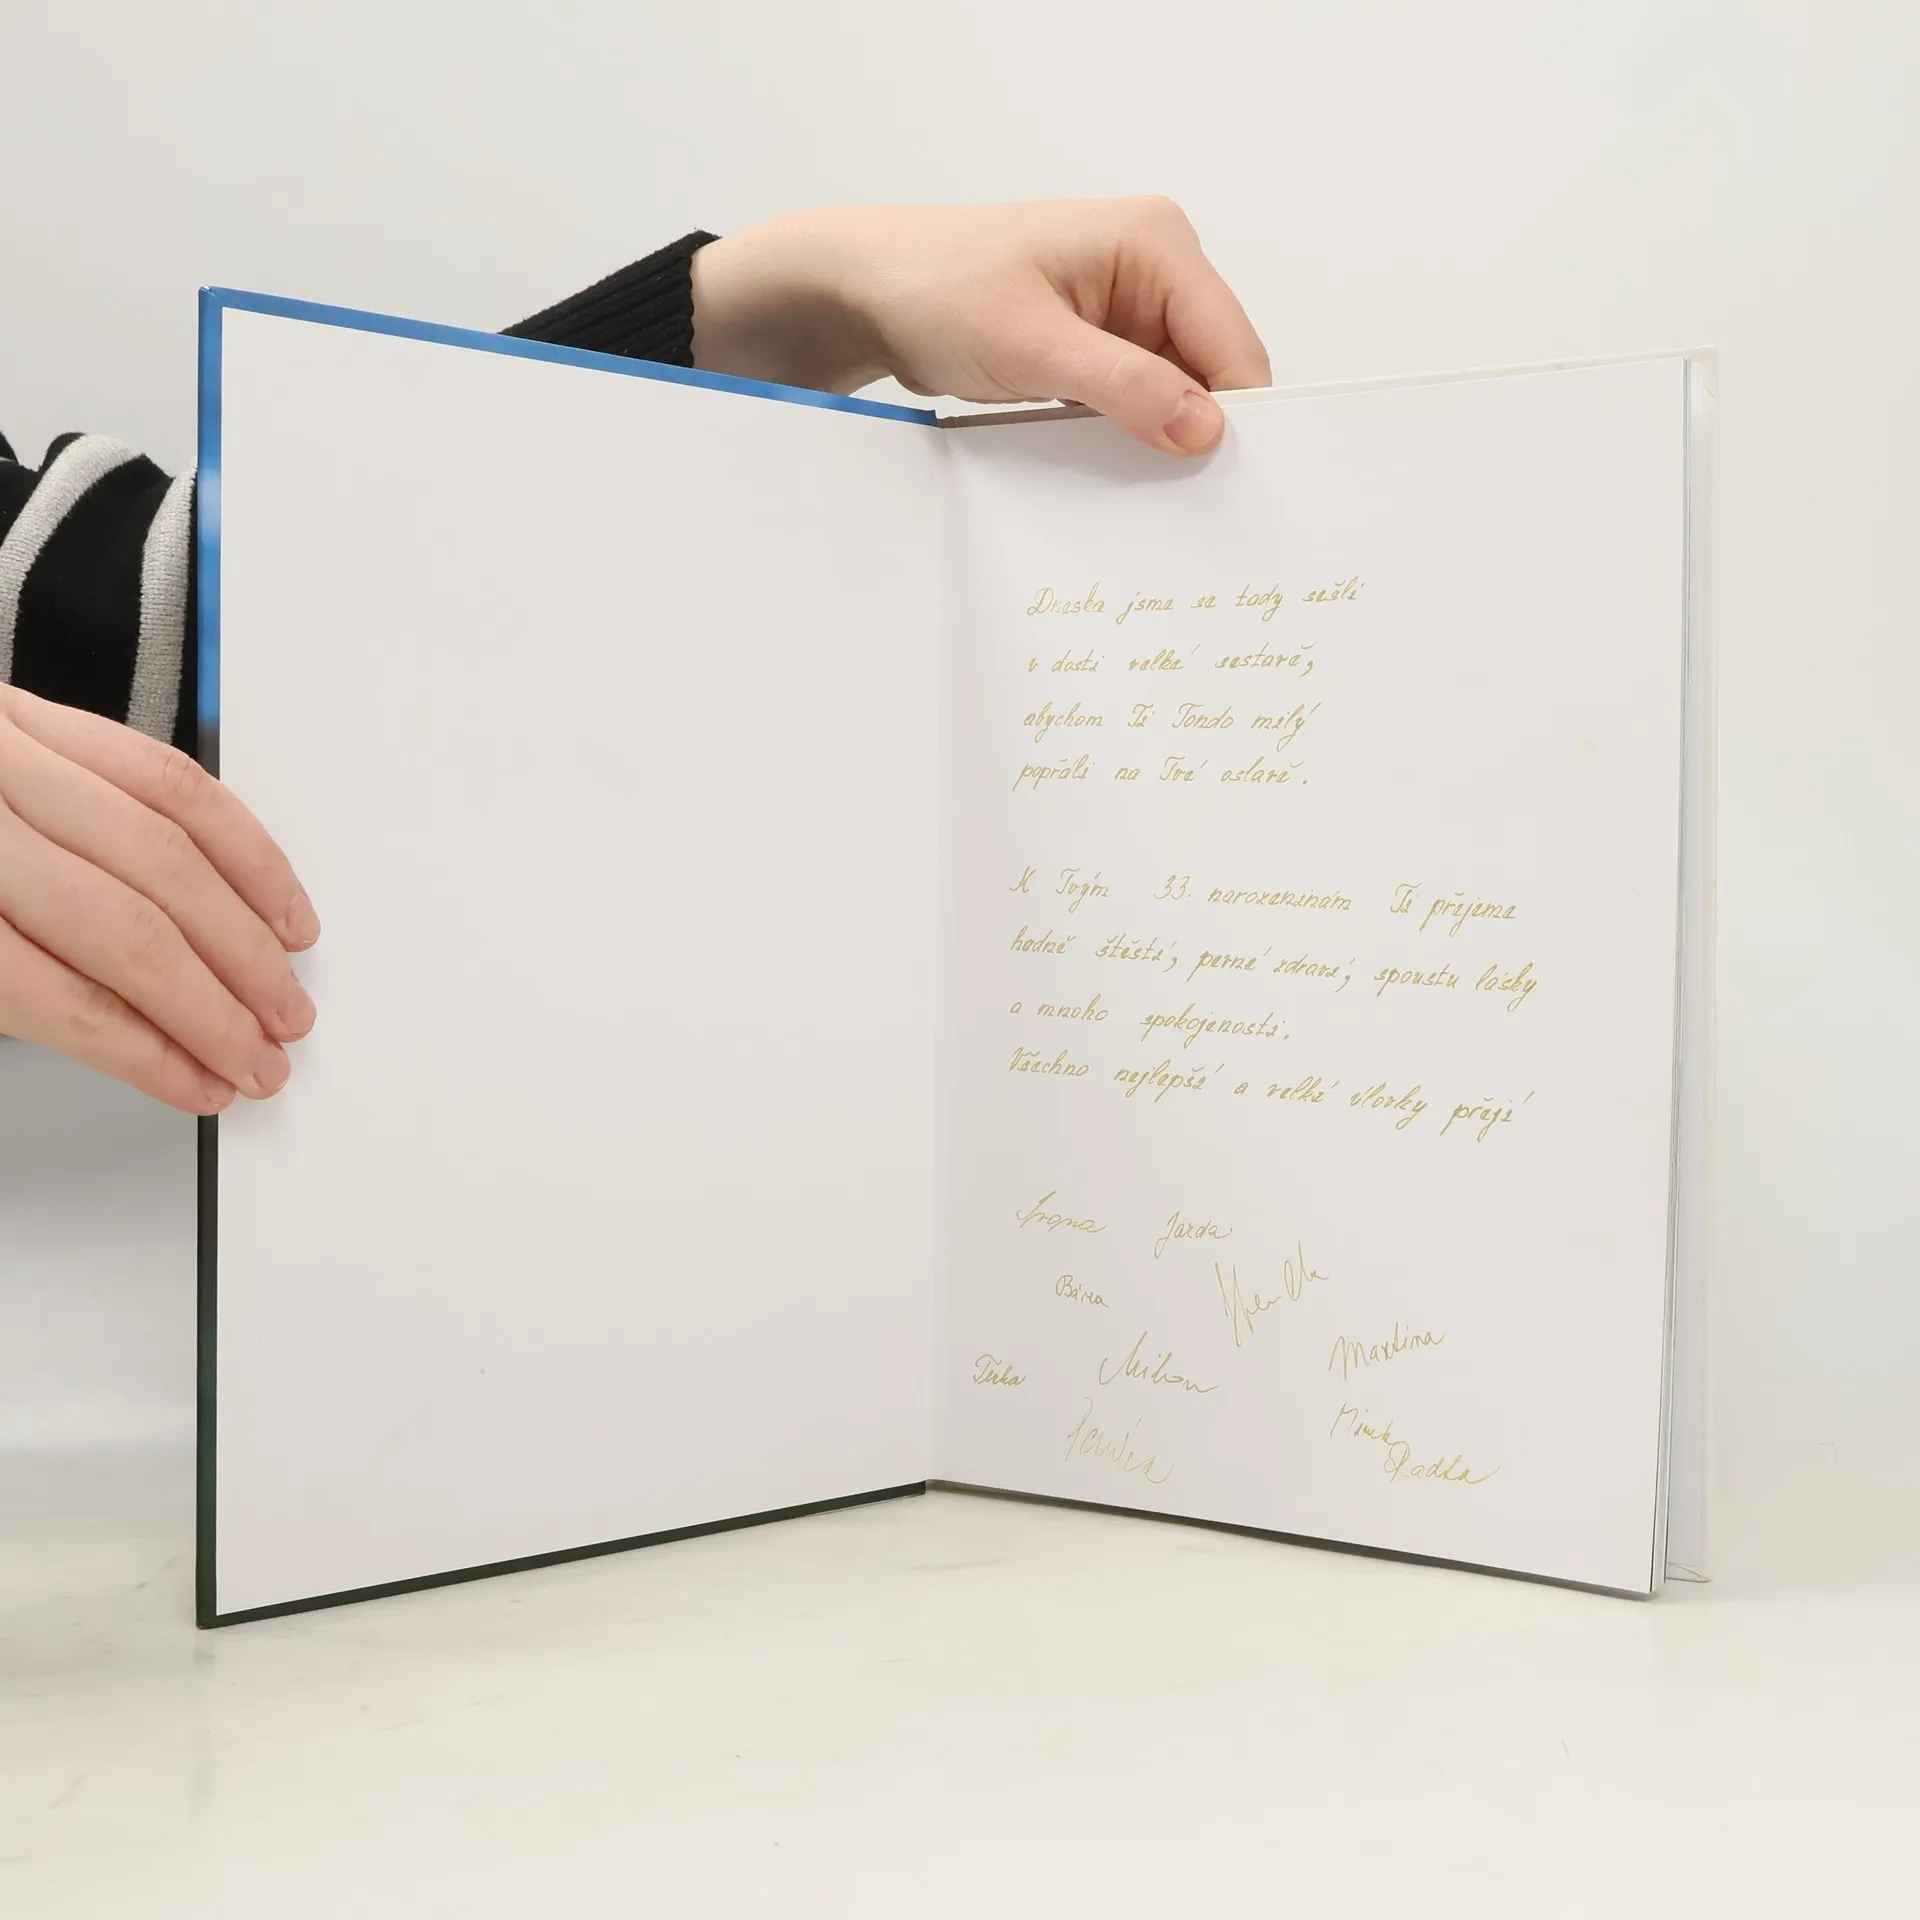 Dneska jsme se tady sešli
v dosti velké sestavě,
abychom Ti Tondo milý
popřáli na Tvé oslavě.
K Tvým 33. narozeninám Ti přejeme
hodně štěstí, pevné zdraví, spoustu lásky
a mnoho spokojenosti.
Všechno nejlepší a velké úlovky přejí
Jarda
Bára
Martina
Terka Milan
Mirek
Pavlína
Radka